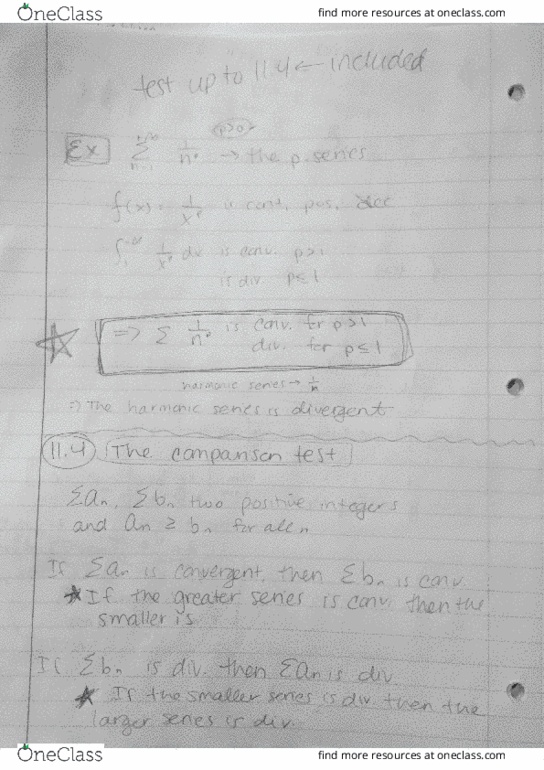 OneClass
find more resources at oneclass.com
test up to 11.4 ← included
Ex ∑ 1/n^p (p>0) → the p. series
f(x) = 1/x^p is cont, pos, dec
∫₁^∞ 1/x^p dx is conv. p>1
is div. p≤1
⇒ ∑ 1/n^p is conv. for p>1
div. for p≤1
harmonic series → 1/n
⇒ The harmonic series is divergent
11.4 The comparison test
∑an, ∑bn two positive integers
and an ≥ bn for all n
If ∑an is convergent, then ∑bn is conv.
★ If the greater series is conv. then the
smaller is
If ∑bn is div. then ∑an is div.
★ If the smaller series is div. then the
larger series is div.
OneClass
find more resources at oneclass.com